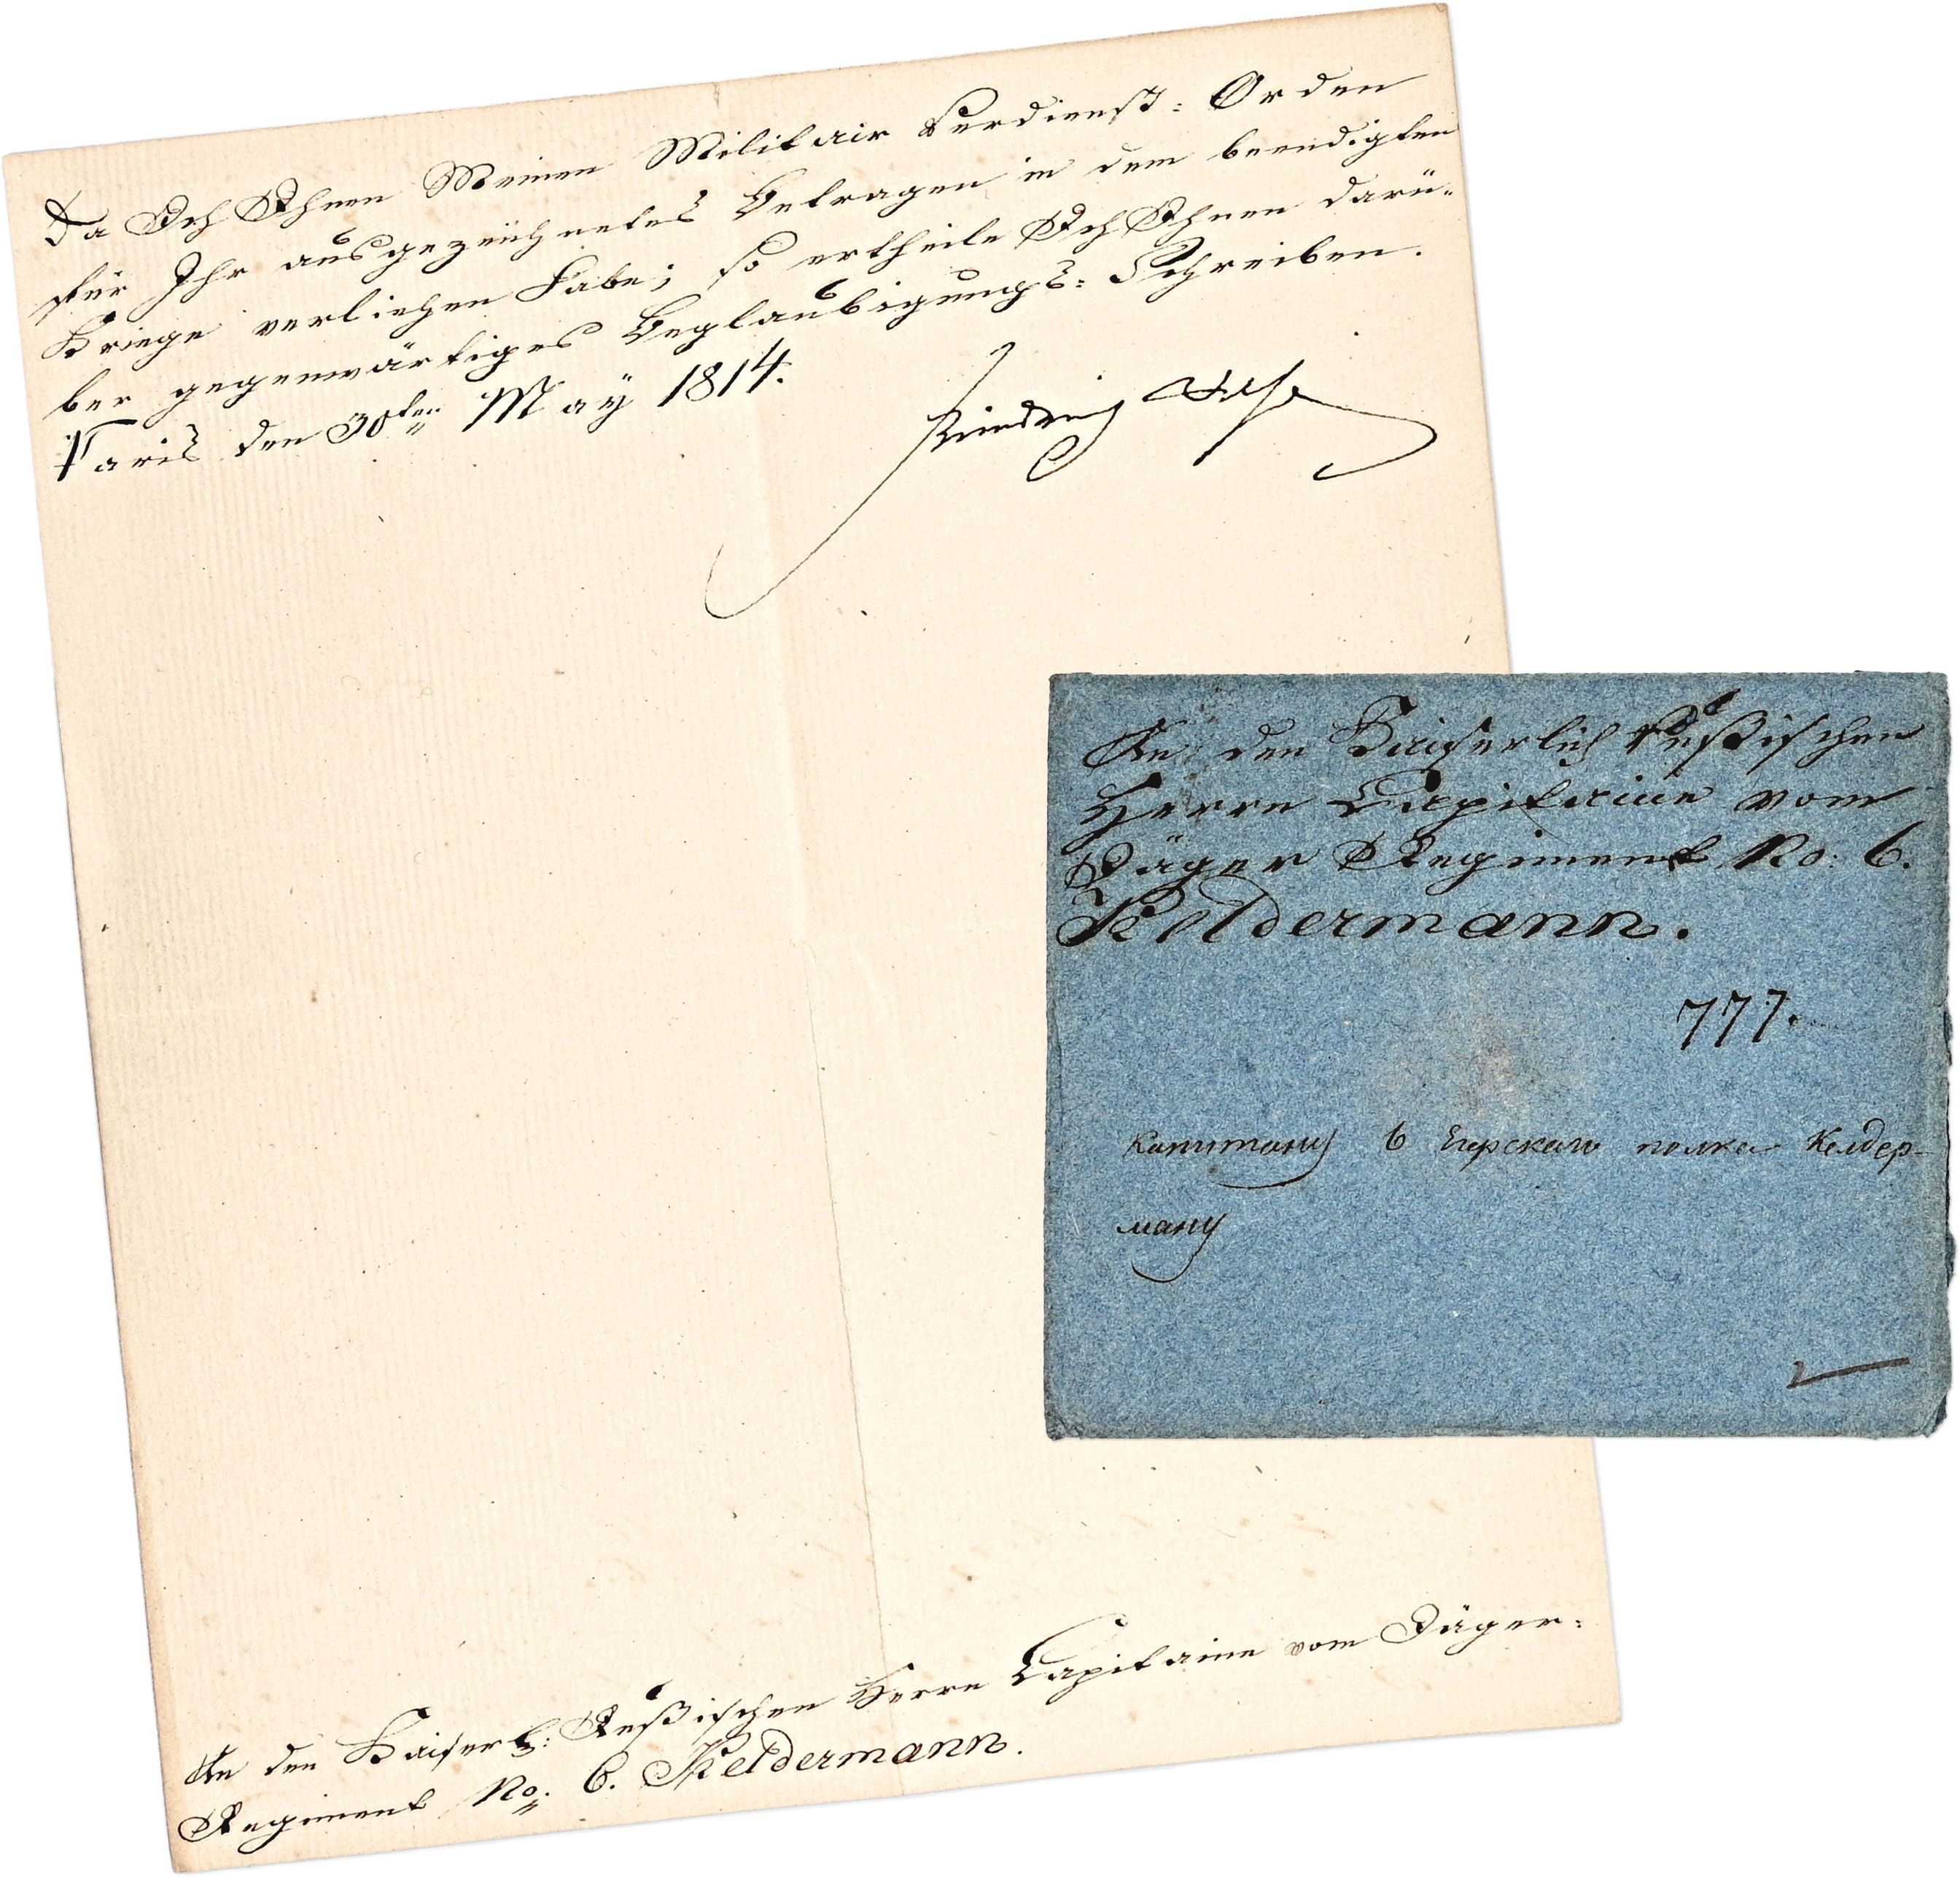 Da Ich Ihnen Meinen Militair Verdienst: Orden
für Ihr ausgezeichnetes Betragen in dem beendigten
Kriege verliehen habe; so ertheile Ich Ihnen darü-
ber gegenwärtiges Beglaubigungs: Schreiben.
Paris den 30ten May 1814.
Friedrich Wilh
An den Kaiserl: Rußischen Herrn Capitaine vom Jäger:
Regiment No: 6. Keldermann.
An den Kaiserlich Rußischen
Herrn Capitaine vom
Jäger Regiment No: 6.
Keldermann.
777.
Капитану 6 Егерскаго полка Келдер-
ману